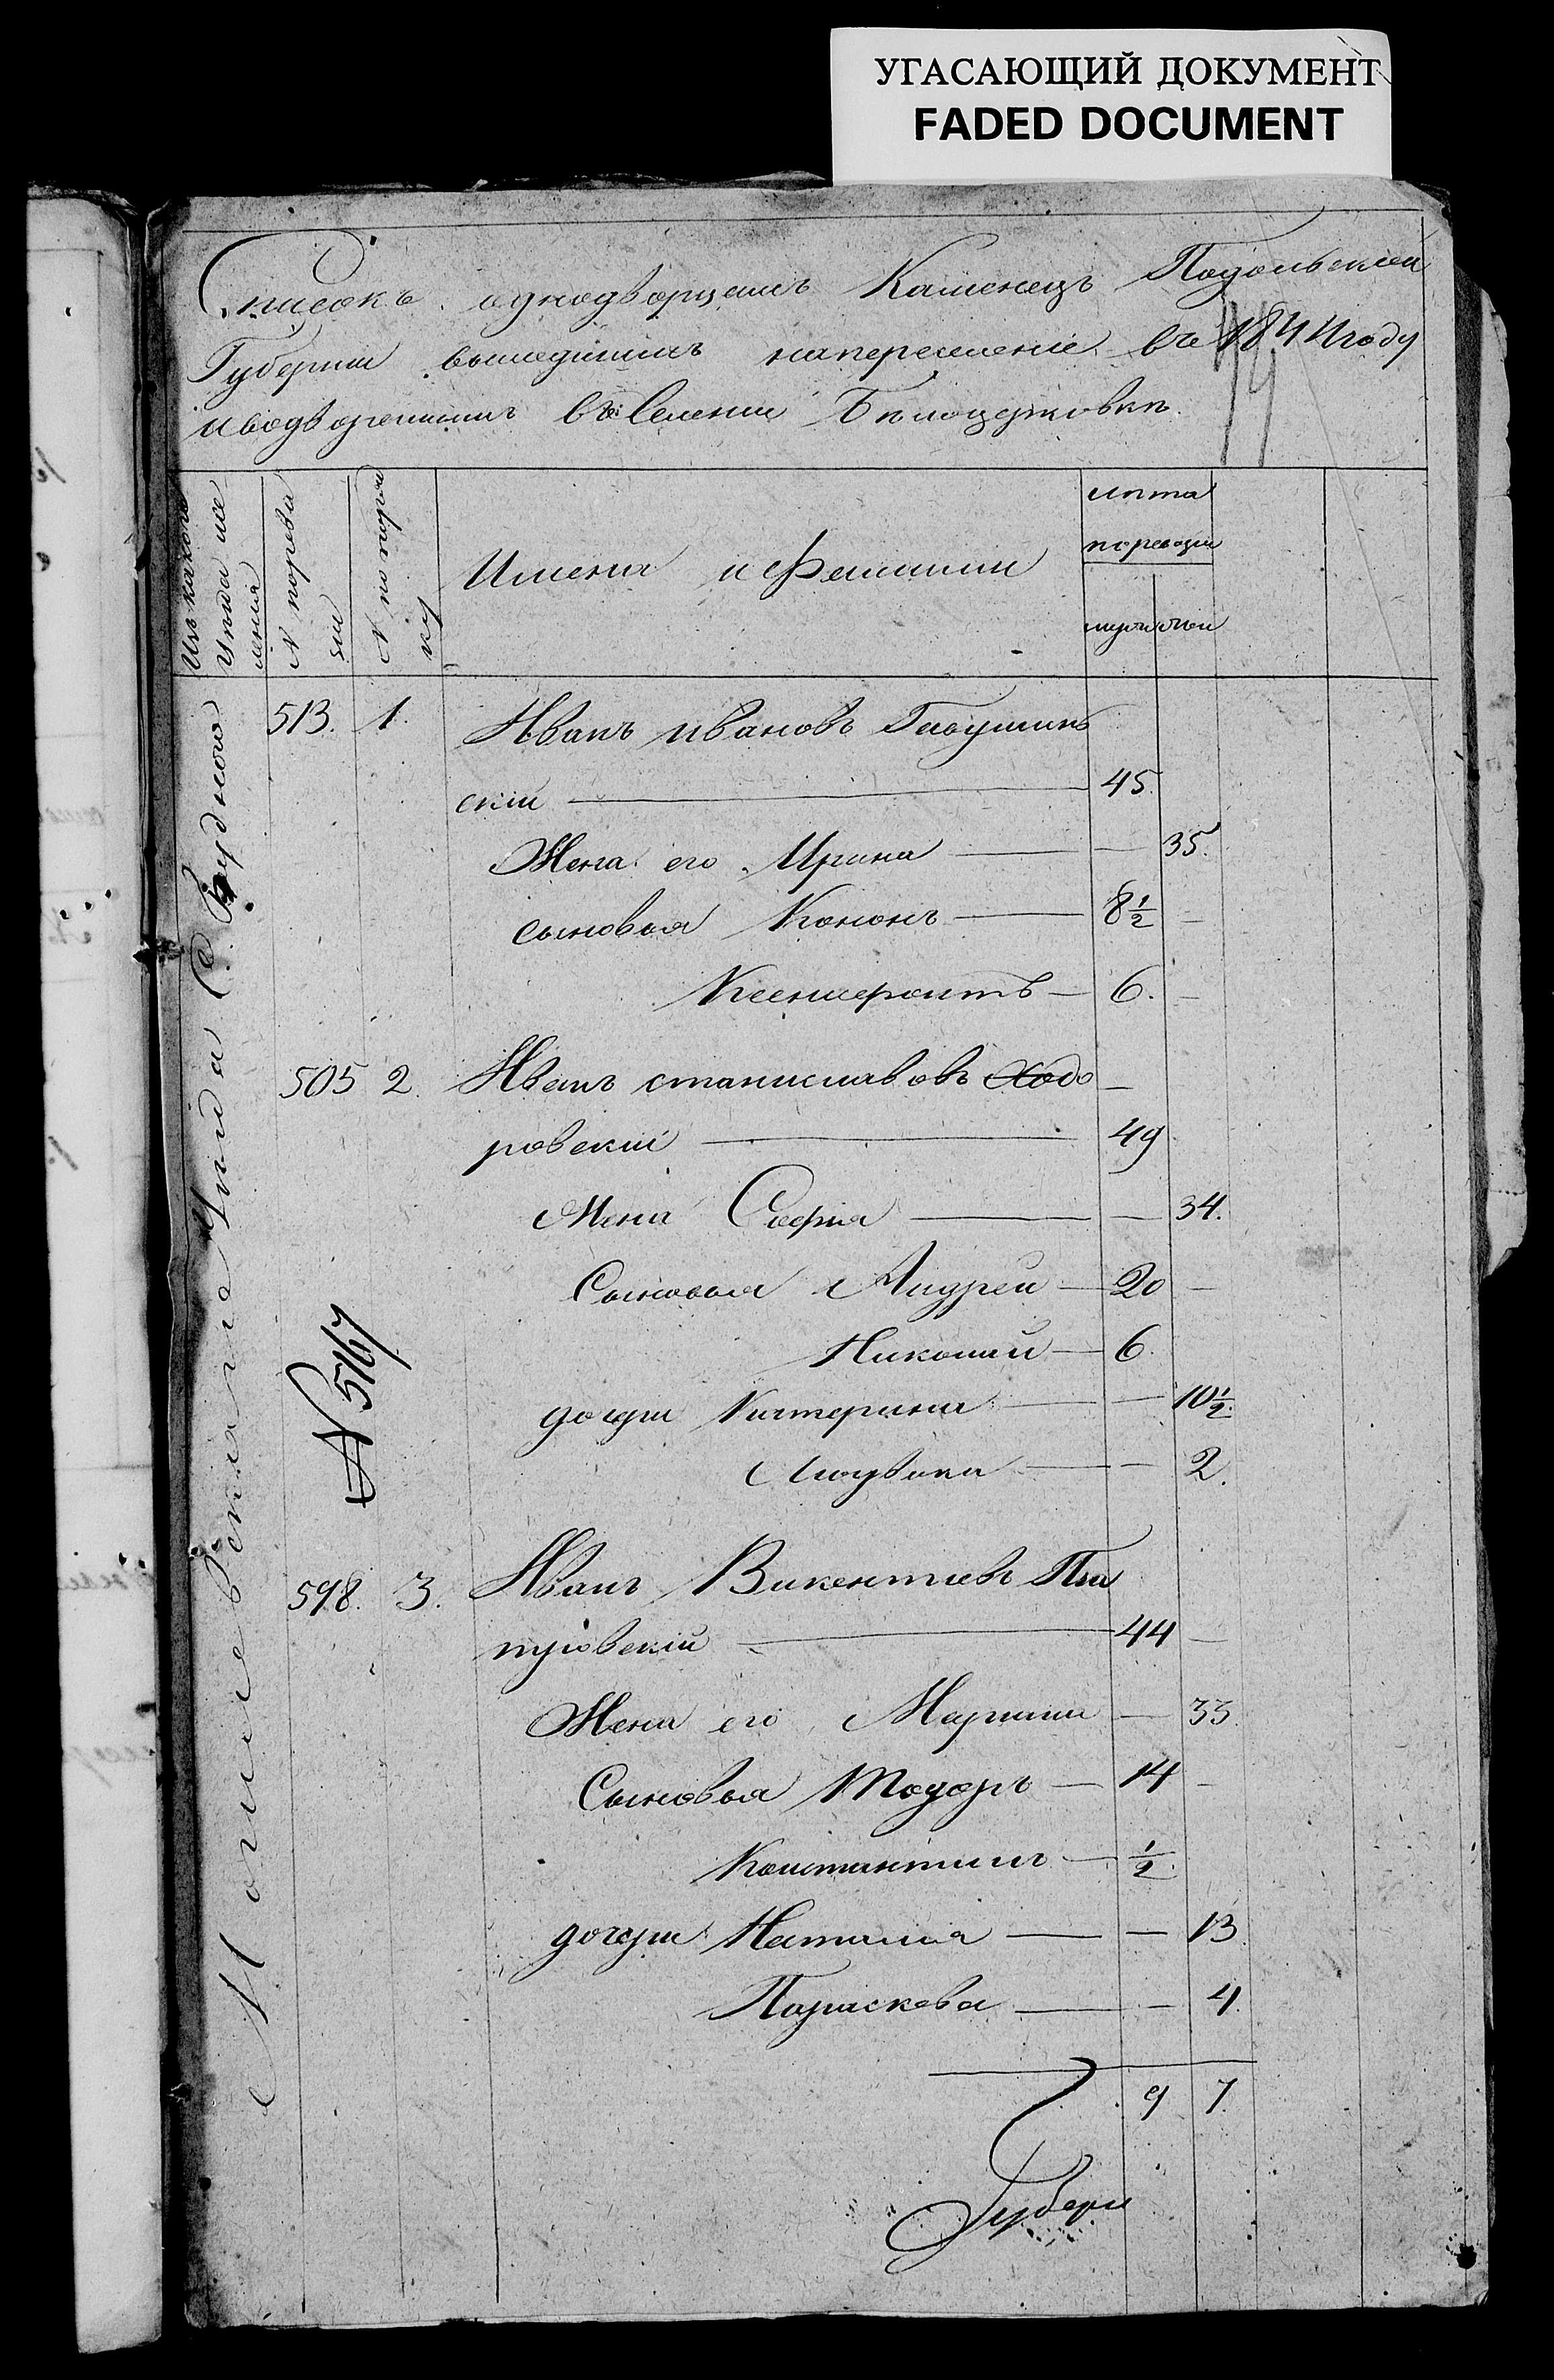 УГАСАЮЩИЙ ДОКУМЕНТ
FADED DOCUMENT
Списокъ однодворцамъ Каменецъ Подольской
Губерніи вышедшимъ на переселеніе въ 1844 году
и водвореннымъ въ Селеніи Белоцерковке.
Изъ какого
Уезда и се
ленія
N по реви
зіи
N по поряд
ку
Имена и Фамиліи
лета
по ревизіи
муж жен
Могилевскаго Уезда С.
513. 1. Иванъ Ивановъ
скій 45.
Жена его Ирина 35.
сыновья Кононъ 8 1/2
Ксенофонтъ 6.
505 2. Иванъ Станиславовъ Ходо
ровскій 49
Жена Софія 34.
Сыновья Андрей 20
Николай 6.
дочери Катерина 10 1/2.
Людвика 2.
N 5167
598. 3. Иванъ Викентіевъ
44
Жена его Марина 33.
Сыновья Тодоръ 14
Константинъ 1/2.
дочери Наталія 13
Параскева 4.
9 7.
Губерн